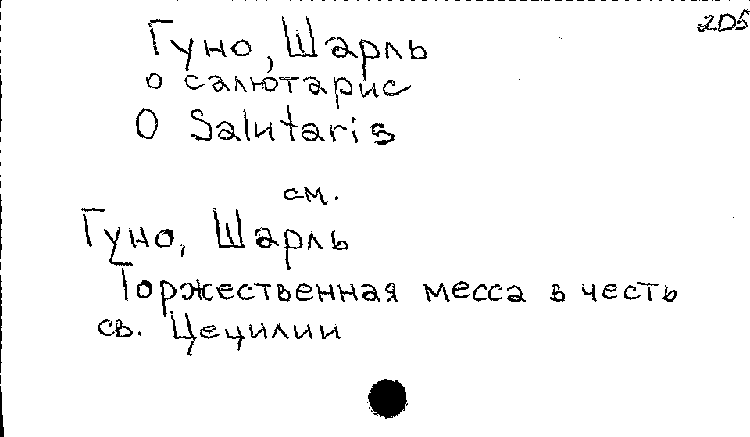 2D5
Гуно, Шарль
о салютарис
O Salutaris
см.
Гуно, Шарль
Торжественная месса в честь
св. Цецилии